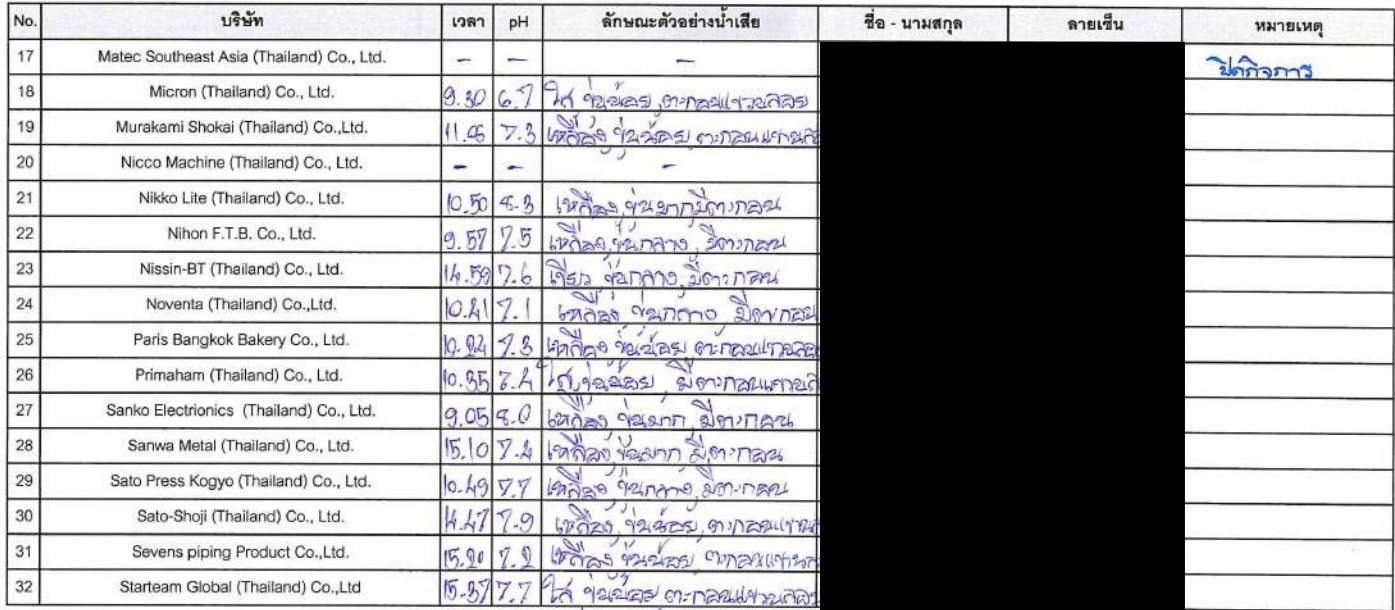 No. บริษัท เวลา pH ลักษณะตัวอย่างน้ำเสีย ชื่อ - นามสกุล ลายเซ็น หมายเหตุ
17 Matec Southeast Asia (Thailand) Co., Ltd. - - - ปิดกิจการ
18 Micron (Thailand) Co., Ltd. 9.30 6.7 ใส ขุ่นน้อย, ตะกอนแขวนลอย
19 Murakami Shokai (Thailand) Co.,Ltd. 11.05 7.3 เหลือง ขุ่นน้อย ตะกอนแขวนล
20 Nicco Machine (Thailand) Co., Ltd. - - -
21 Nikko Lite (Thailand) Co., Ltd. 10.50 8.3 เหลือง, ขุ่นมาก, มีตะกอน
22 Nihon F.T.B. Co., Ltd. 9.57 7.5 เหลือง, ขุ่นกลาง, มีตะกอน
23 Nissin-BT (Thailand) Co., Ltd. 14.59 7.6 เขียว ขุ่นกลาง, มีตะกอน
24 Noventa (Thailand) Co.,Ltd. 10.41 7.1 เหลือง ขุ่นกลาง มีตะกอน
25 Paris Bangkok Bakery Co., Ltd. 10.24 7.3 เหลือง ขุ่นน้อย ตะกอนแขวนลอ
26 Primaham (Thailand) Co., Ltd. 10.35 7.4 ใส, ขุ่นน้อย, มีตะกอนแขวนล
27 Sanko Electrionics (Thailand) Co., Ltd. 9.05 8.0 เหลือง ขุ่นมาก, มีตะกอน
28 Sanwa Metal (Thailand) Co., Ltd. 15.10 7.4 เหลือง, ขุ่นมาก มีตะกอน
29 Sato Press Kogyo (Thailand) Co., Ltd. 10.49 7.7 เหลือง ขุ่นกลาง, มีตะกอน
30 Sato-Shoji (Thailand) Co., Ltd. 14.47 7.9 เหลือง, ขุ่นน้อย, ตะกอนแขวนล
31 Sevens piping Product Co.,Ltd. 15.20 7.2 เหลือง ขุ่นน้อย ตะกอนแขวนล
32 Starteam Global (Thailand) Co.,Ltd 15.37 7.7 ใส ขุ่นน้อย ตะกอนแขวนลอย